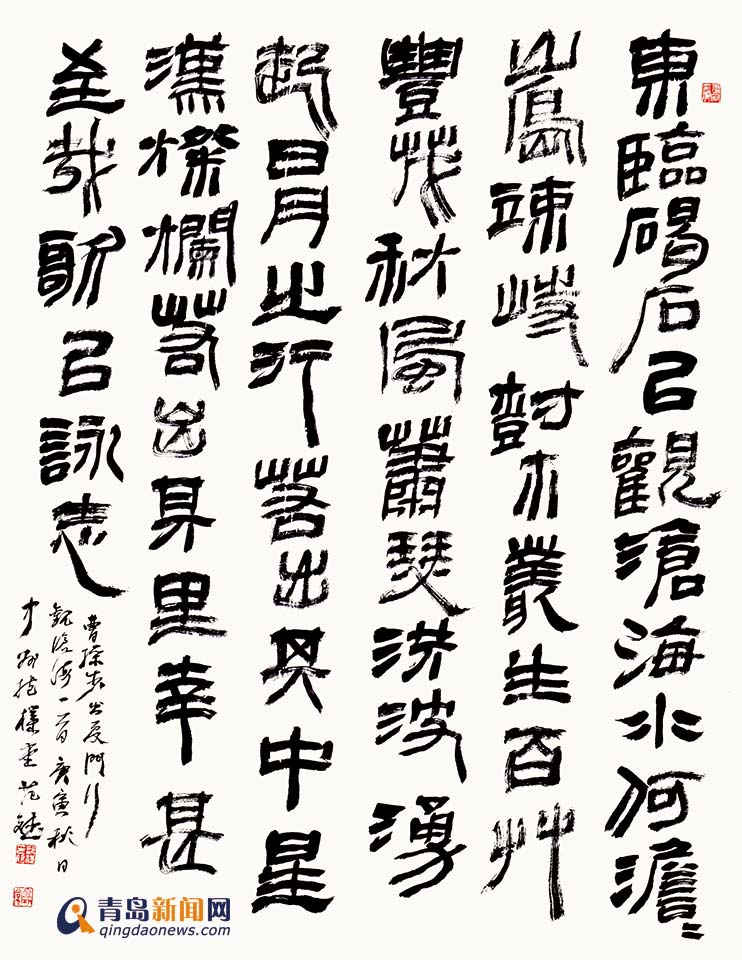 東臨碣石㠯觀滄海水何澹〻
山島竦峙尌木叢生百艸
豐茂秋風蕭瑟洪波湧
起日月之行若出其中星
漢燦爛若出其里幸甚
至哉歌㠯詠志
曹操步出夏門行
觀滄海一首庚寅秋日
樸堂范
青岛新闻网
qingdaonews.com